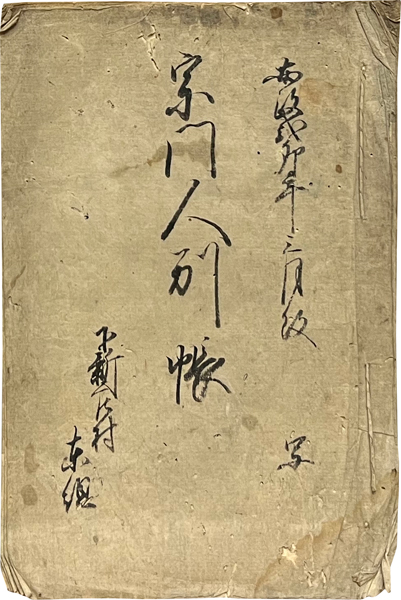 安政弐卯年三月改
写
宗門人別帳
下新村
東組